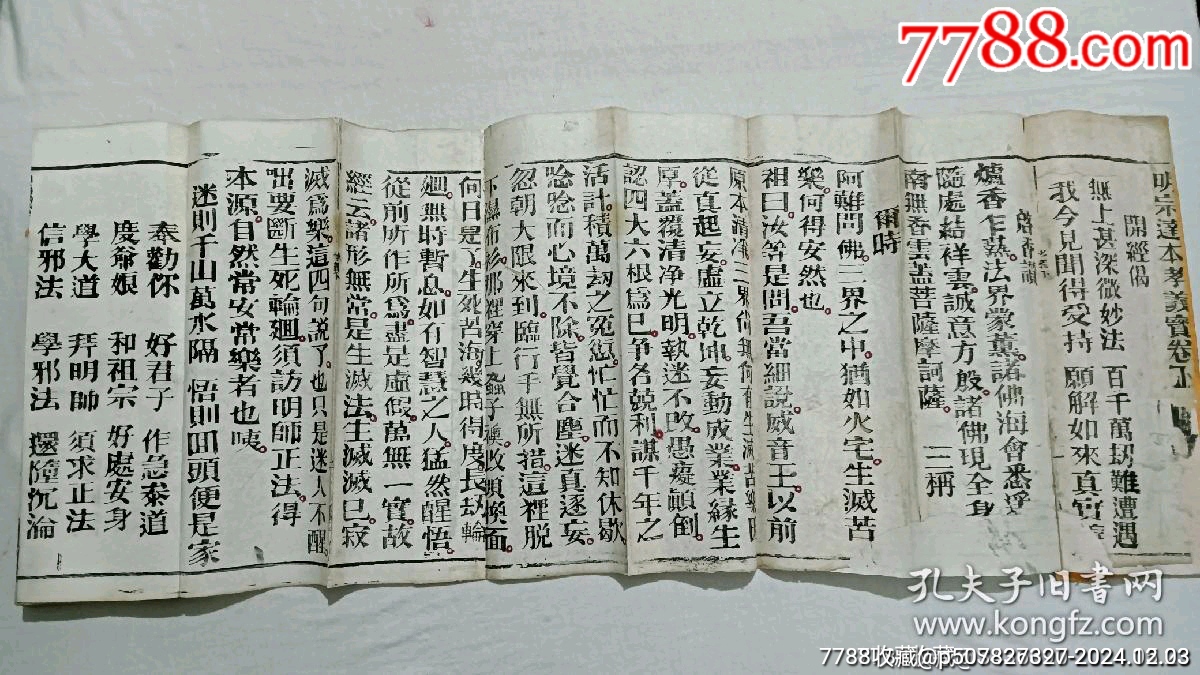 7788.com
明宗達本孝義寶卷
開經偈
無上甚深微妙法 百千萬劫難遭遇
我今見聞得受持 願解如來真實
爐香乍爇。法界蒙薰。諸佛海會悉
隨處結祥雲。誠意方殷。諸佛現全身
南無香雲盖菩薩摩訶薩。 三稱
爾時
阿難問佛。三界之中。猶如火宅。生滅苦
樂。何得安然也。
祖曰。汝等是問。吾當細說。威音王。以前
原本清淨。三界尚無。何有生滅苦樂
從真起妄。虛立乾坤。妄動成業。業緣生
厚。蓋覆清净光明。執迷不改。愚癡顛倒。
認四大六根爲已。争名競利。謀千年之
活計。積萬刼之寃愆。忙忙而不知休歇
唸唸而心境不除。皆覺合塵。迷真逐妄。
忽朝大限來到。臨行手無所措。這裡脫
下 布衫。那裡穿上 子襖。改頭換面。
何日是了。生死苦海。幾時得度。長刼輪
廻。無時暫息。如有智慧之人。猛然醒悟。
從前所作所爲。盡是虛假。萬無一實。故
經云。諸形無常。是生滅法。生滅滅已。寂
滅爲樂。這四句說了。也只是迷人不醒。
咄。要斷生死輪廻。須訪明師正法。得
本源。自然常安常樂者也。咦
迷則千山萬水隔 悟則回頭便是家
奉勸你 好君子 作急奉道
度爺娘 和祖宗 好處安身
學大道 拜明師 須求正法
信邪法 學邪法 還隨沉淪
孔夫子旧书网
www.kongfz.com
7788收藏@p507827327-2024.12.03